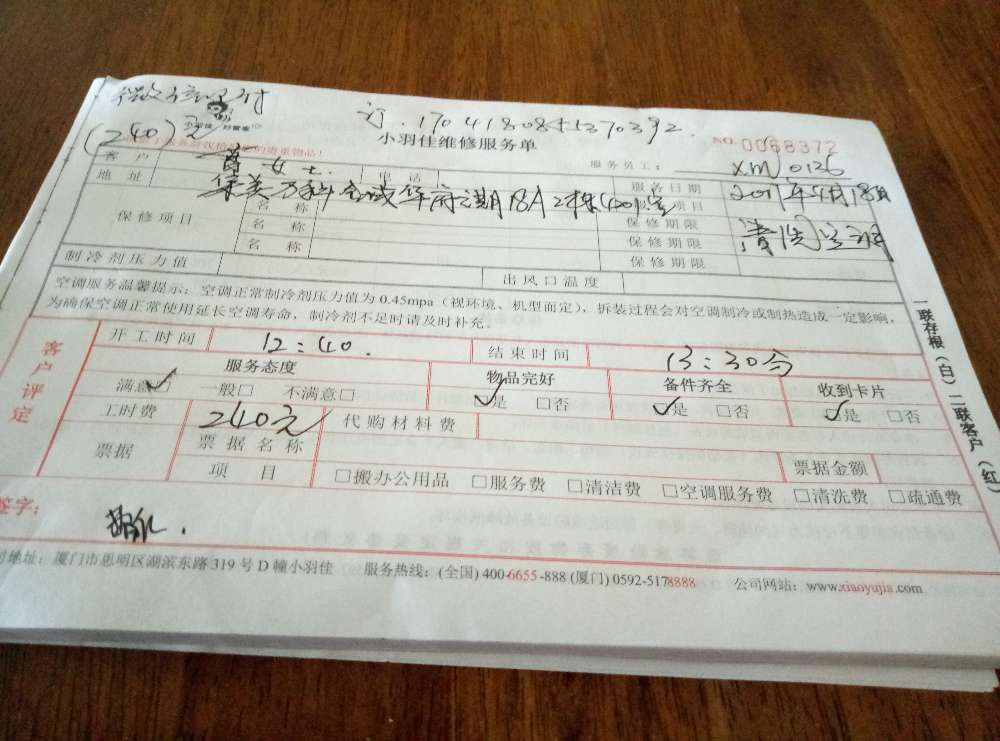 (240)元
小羽佳 好管家
订.
小羽佳维修服务单
NO. 0068372
贵重物品!
客 户 女士. 电 话 服务员工: XM.0126
地 址 集美万科金域华府二期18A2栋 服务日期 2017年4月18日
保修项目 名 称 保修期限 清洗空调
名 称 保修期限
名 称 保修期限
制冷剂压力值 出风口温度
空调服务温馨提示:空调正常制冷剂压力值为0.45mpa(视环境、机型而定),拆装过程会对空调制冷或制热造成一定影响,
为确保空调正常使用延长空调寿命,制冷剂不足时请及时补充。
客户评定
开工时间 12:40. 结束时间 13:30分
服务态度 物品完好 备件齐全 收到卡片
满意☑ 一般□ 不满意□ ☑是 □否 ☑是 □否 ☑是 □否
工时费 240元 代购材料费
票据 票据名称 票据金额
项 目 □搬办公用品 □服务费 □清洁费 □空调服务费 □清洗费 □疏通费
签字:
司地址:厦门市思明区湖滨东路319号D幢小羽佳 服务热线:(全国)400-6655-888(厦门)0592-5178888 公司网站:www.xiaoyujia.com
一联存根(白)二联客户(红)